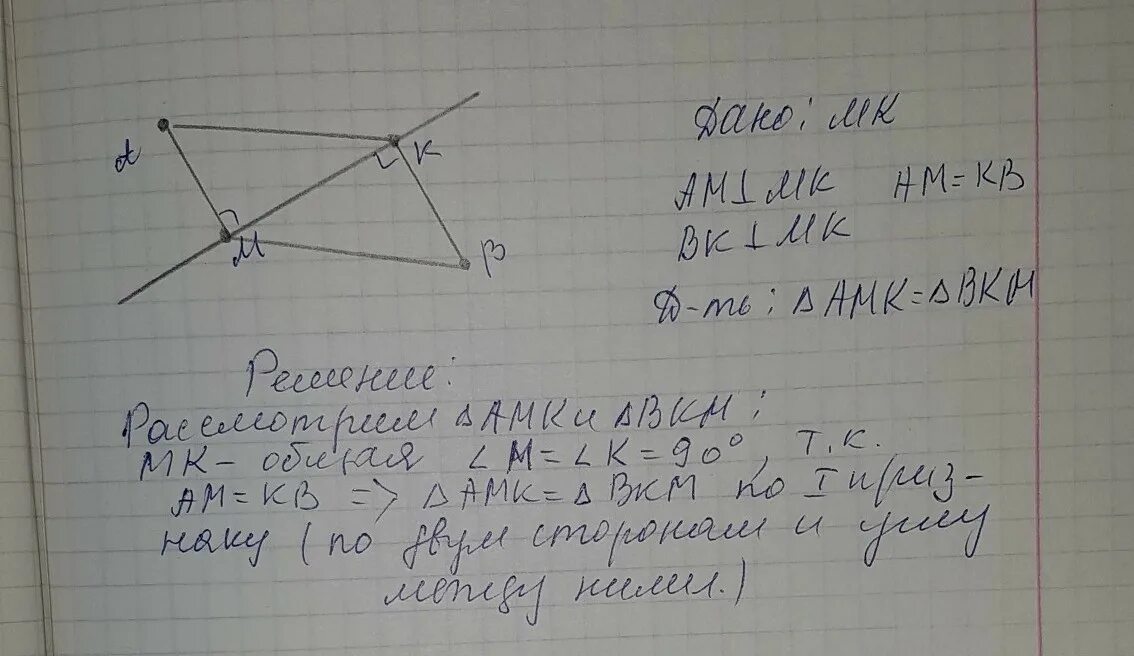 A
K
M
B
Дано: MK
AM⊥MK AM=KB
BK⊥MK
Д-ть: △AMK=△BKM
Решение:
Рассмотрим △AMK и △BKM:
MK- общая ∠M=∠K=90°, т.к.
AM=KB => △AMK=△BKM по I приз-
наку (по двум сторонам и углу
между ними.)